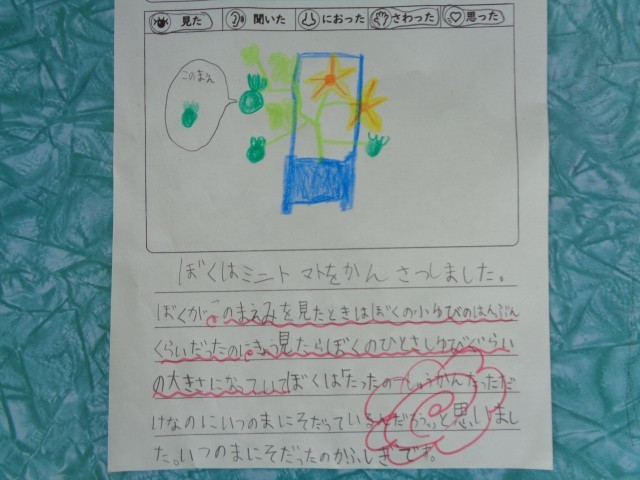 見た 聞いた におった さわった 思った
このまえ
ぼくはミニトマトをかんさつしました。
ぼくがこのまえみを見たときはぼくの小ゆびのはんぶん
くらいだったのにきょう見たらぼくのひとさしゆびぐらい
の大きさになっていてぼくは「たったの一しゅうかんたっただ
けなのにいつのまにそだっているんだろう。」と思いまし
た。いつのまにそだったのかふしぎです。